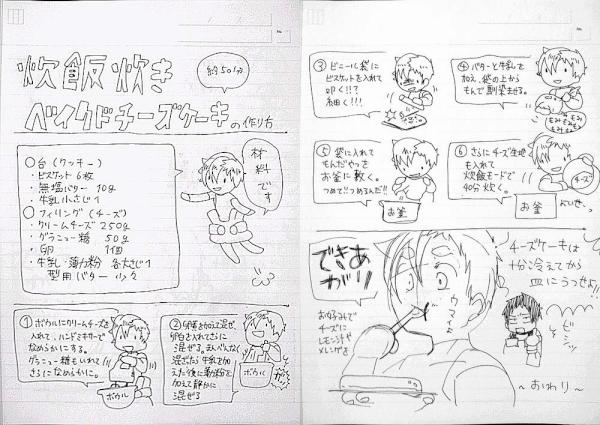 炊飯炊き
約50分
ベイクドチーズケーキの作り方
○台(クッキー)
・ビスケット 6枚
・無塩バター 10g
・牛乳 小さじ1
○フィリング(チーズ)
・クリームチーズ 250g
・グラニュー糖 50g
・卵 1個
・牛乳・薄力粉 各大さじ1
型用バター 少々
材料です
①ボウルにクリームチーズを
入れて、ハンドミキサーで
なめらかにする。
グラニュー糖もいれて
さらになめらかに。
ボウル
②卵黄を加えて混ぜ、
卵白を入れてさらに
混ぜる。まんべんなく
混ざったら牛乳を加
えた後に薄力粉を
加えて静かに
混ぜる
ボウル
③ビニール袋に
ビスケットを入れて
叩く!!?
細く!!!
④バターと牛乳を
加え、袋の上から
もんで馴染ませる。
もみもみもみ
もみもみもみ
⑤袋に入れて
もんだやつを
お釜に敷く。
つめて!!つめるんだ!!
お釜
⑥さらにチーズ生地
も入れて
炊飯モードで
40分炊く。
チーズ
お釜
よいせ、
できあがり
お好みで
チーズに
レモン汁や
メレンゲを
ウマイよ
チーズケーキは
十分冷えてから
皿にうつせよ!!
～おわり～